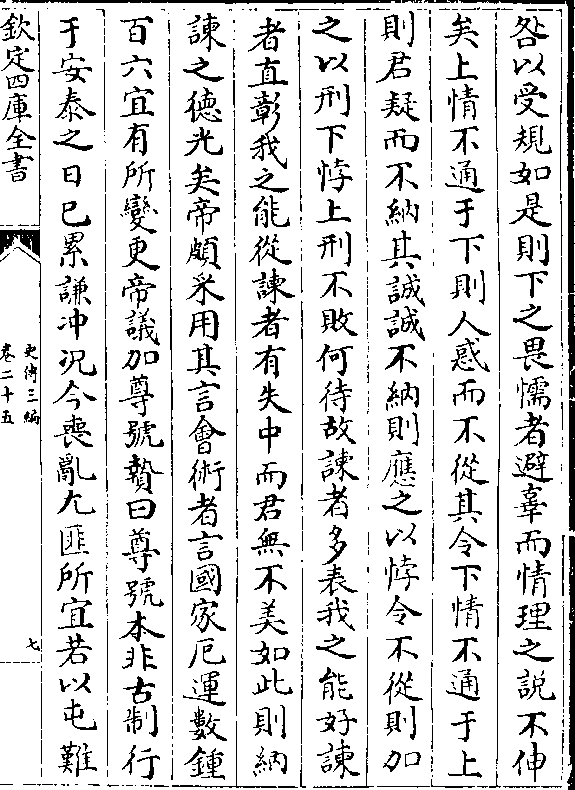 咎以受規如是則下之畏懦者避辜而情理之說不伸
矣上情不通于下則人惑而不從其令下情不通于上
則君疑而不納其誠誠不納則應之以悖令不從則加
之以刑下悖上刑不敗何待故諫者多表我之能好諫
者直彰我之能從諫者有失中而君無不美如此則納
諫之徳光矣帝頗采用其言會術者言國家厄運數鍾
百六宜有所變更帝議加尊號贄曰尊號本非古制行
于安泰之日已累謙冲況今喪亂尤匪所宜若以屯難
欽定四庫全書
史傳三編
卷二十五
七